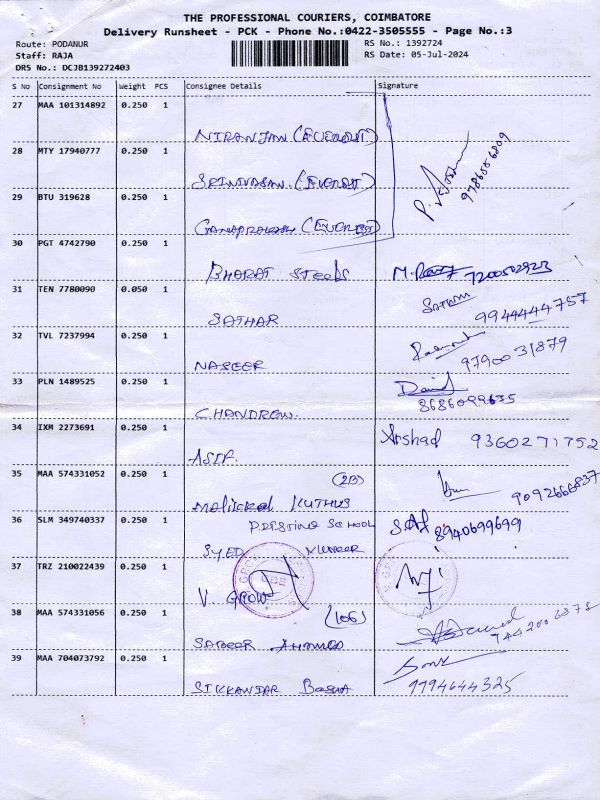 THE PROFESSIONAL COURIERS, COIMBATORE
Delivery Runsheet - PCK - Phone No.:0422-3505555 - Page No.:3
Route: PODANUR RS No.: 1392724
Staff: RAJA RS Date: 05-Jul-2024
DRS No.: DCJB139272403
S No Consignment No Weight PCS Consignee Details Signature
27 MAA 101314892 0.250 1
NIRANJAN (EVEREST)
28 MTY 17940777 0.250 1
SRINIVASAN (EVEREST)
9786556809
29 BTU 319628 0.250 1
(EVEREST)
30 PGT 4742790 0.250 1
BHARAT Steels M. 7200502923
31 TEN 7780090 0.050 1
SATHAR 9944444757
32 TVL 7237994 0.250 1
NASEER 9790031879
33 PLN 1489525 0.250 1
CHANDREW. David 8686099635
34 IXM 2273691 0.250 1
ASIF. Arshad 9360271752
35 MAA 574331052 0.250 1
(2B)
KUTHUS 9092666837
36 SLM 349740337 0.250 1
SCHOOL
SYED MUNEER 8940699699
37 TRZ 210022439 0.250 1
V. GROW
38 MAA 574331056 0.250 1
(106)
SABEER AHAMED
39 MAA 704073792 0.250 1
SIKKANDAR BASHA 9994644325